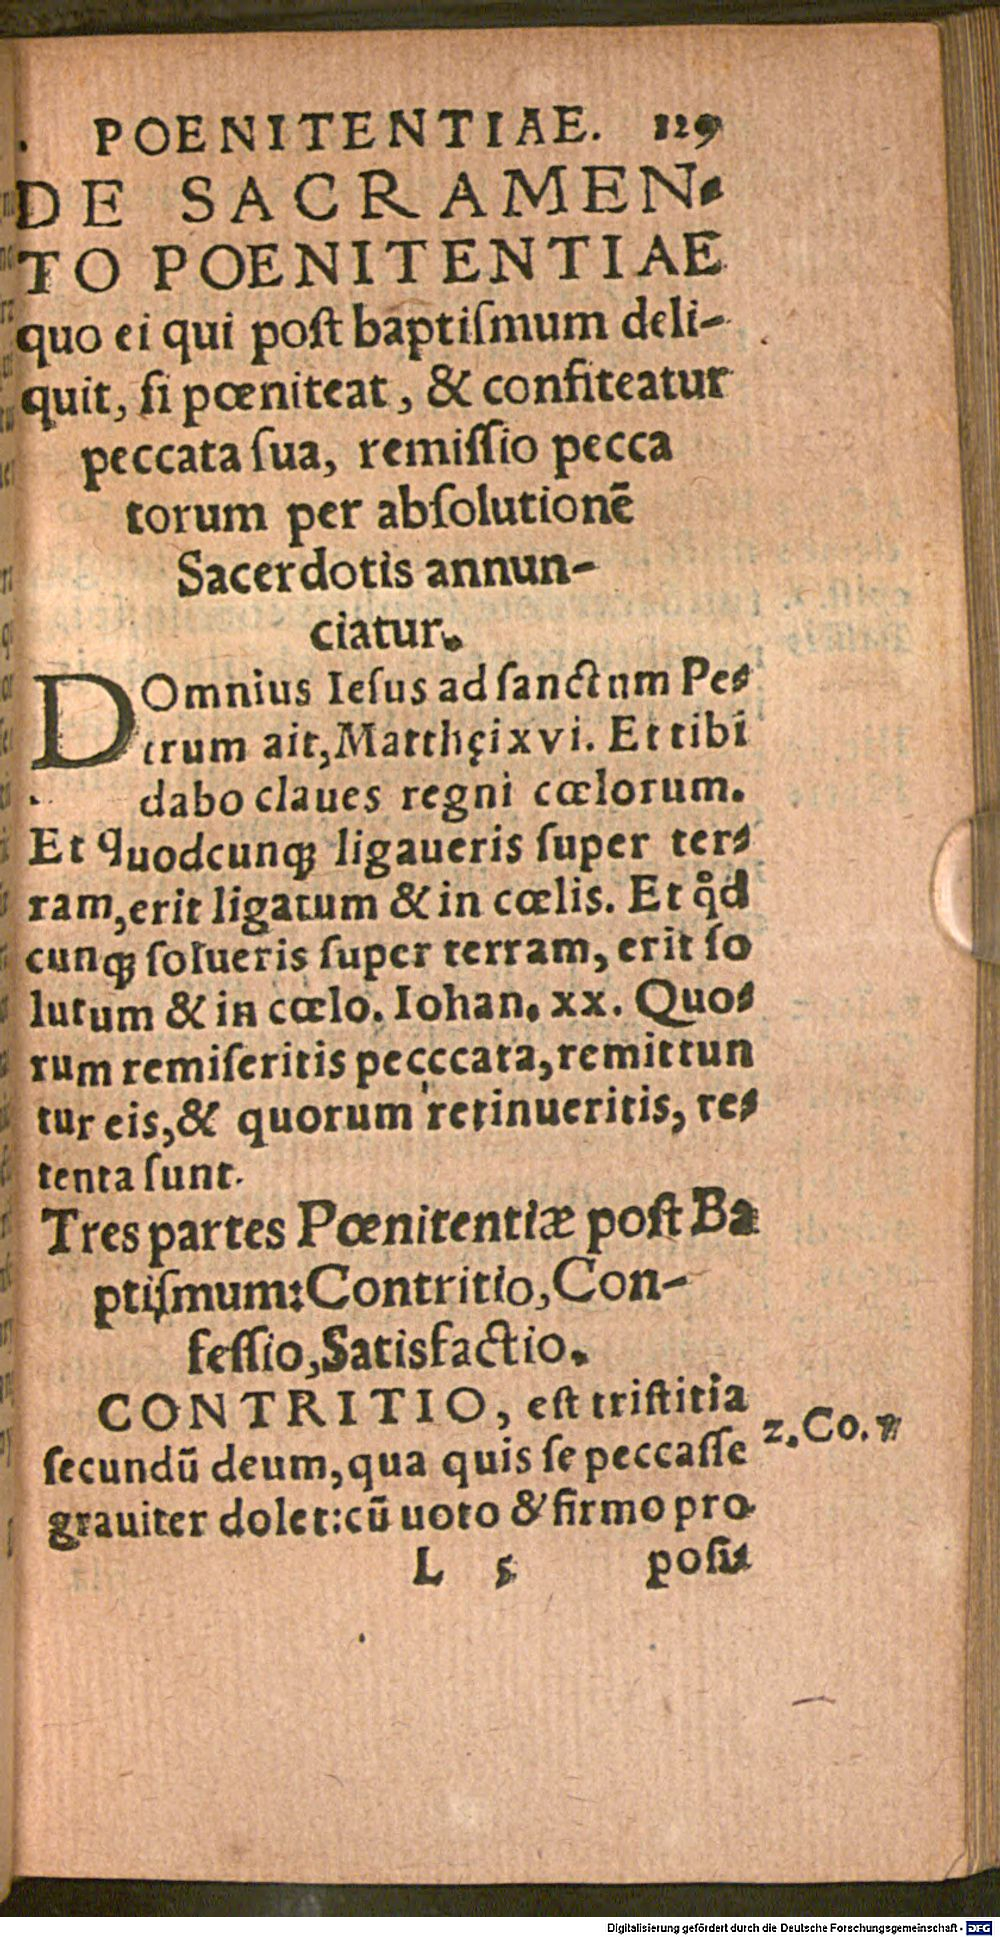 POENITENTIAE. 129
DE SACRAMEN-
TO POENITENTIAE
quo ei qui poſt baptiſmum deli-
quit, ſi pœniteat, & confiteatur
peccata ſua, remiſſio pecca
torum per abſolutionē
Sacerdotis annun-
ciatur.
DOmnius Ieſus ad ſanctum Pe-
trum ait, Matthęi xvi. Et tibi
dabo claues regni cœlorum.
Et quodcunqꝫ ligaueris ſuper ter-
ram, erit ligatum & in cœlis. Et qđ
cunqꝫ ſolueris ſuper terram, erit ſo
lutum & in cœlo. Iohan. xx. Quo-
rum remiſeritis pecccata, remittun
tur eis, & quorum retinueritis, re-
tenta ſunt.
Tres partes Pœnitentiæ poſt Ba
ptiſmum: Contritio, Con-
feſſio, Satisfactio.
CONTRITIO, eſt triſtitia
ſecundū deum, qua quis ſe peccaſſe
grauiter dolet: cū uoto & firmo pro
2. Co. 7
L 5 poſi-
Digitalisierung gefördert durch die Deutsche Forschungsgemeinschaft - DFG